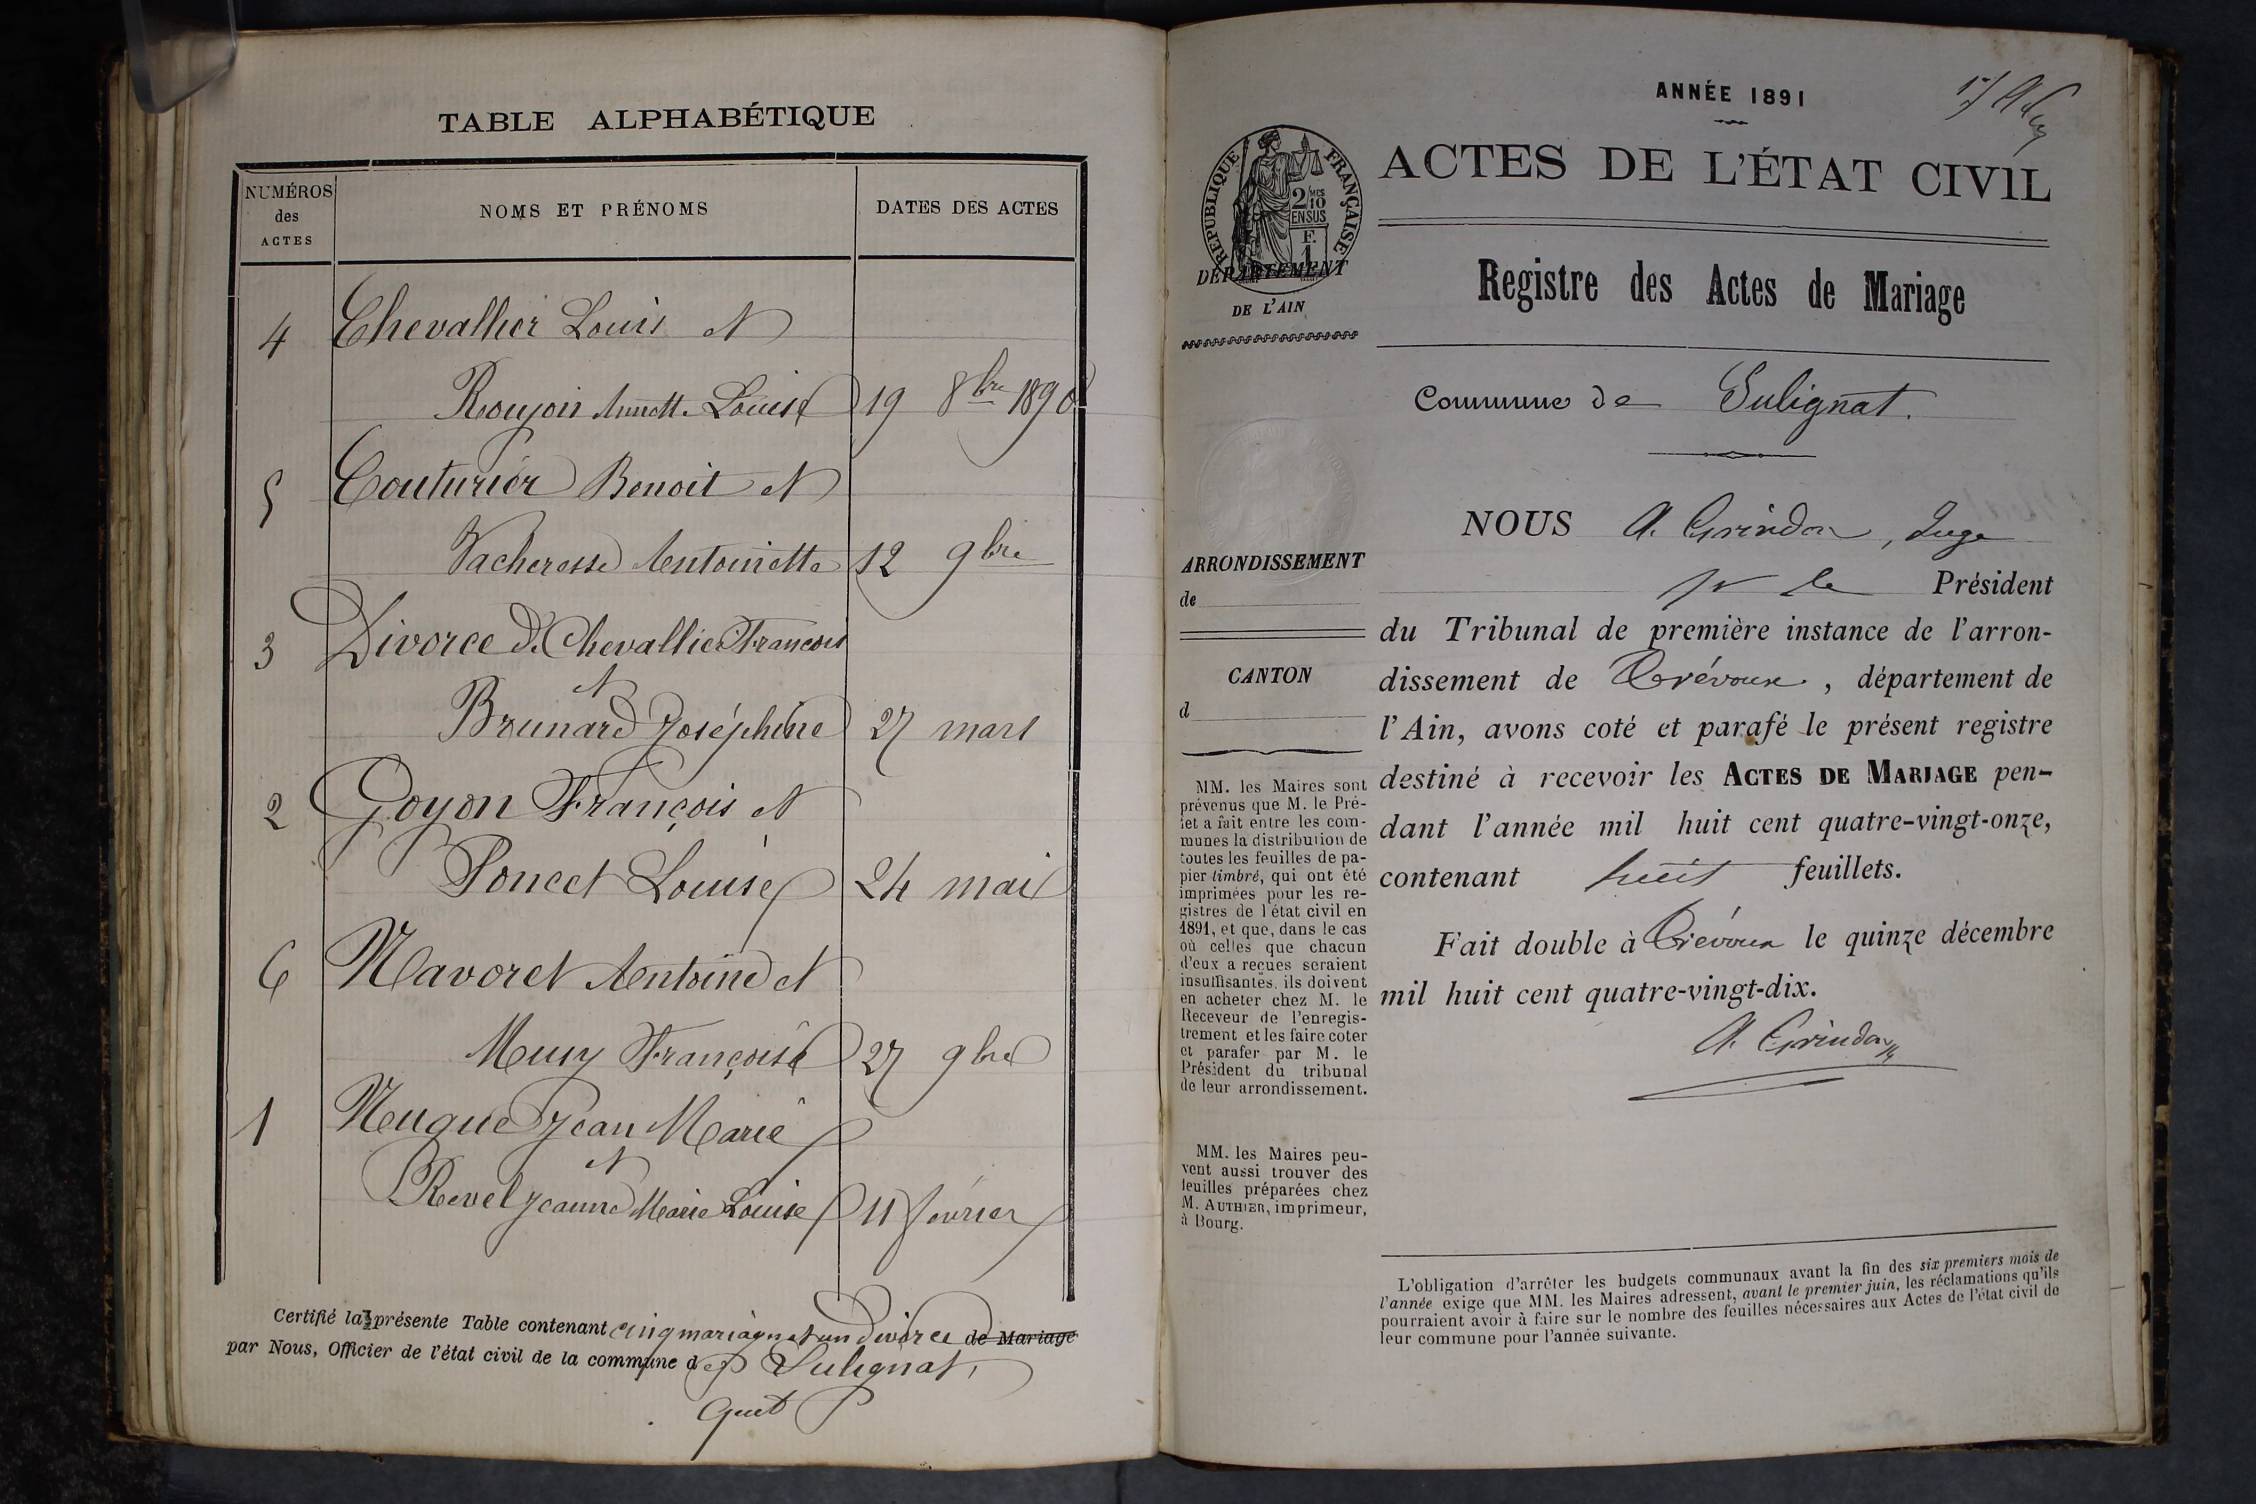 TABLE ALPHABÉTIQUE
NUMÉROS
des
ACTES
NOMS ET PRÉNOMS
DATES DES ACTES
4 Chevallier Louis et
Roujon Annette Louise 19 8bre 1890
5 Couturier Benoit et
Vacheresse Antoinette 12 9bre
3 Divorce de Chevallier François
et
Brunard Joséphine 27 mars
2 Goyon François et
Poncet Louise 24 mai
6 Mavoret Antoine et
Meusy Françoise 27 9bre
1 Nugue Jean Marie
et
Revel Jeanne Marie Louise 11 février
Certifié la présente Table contenant cinq mariages et un divorce de Mariage
par Nous, Officier de l'état civil de la commune de Sulignat,
ANNÉE 1891
ACTES DE L'ÉTAT CIVIL
RÉPUBLIQUE FRANÇAISE
2 MES
10
EN SUS
F.
1
DÉPARTEMENT
DE L'AIN
Registre des Actes de Mariage
Commune de Sulignat.
NOUS A. Grindon, Juge
pr le Président
du Tribunal de première instance de l'arron-
dissement de Trévoux, département de
l'Ain, avons coté et parafé le présent registre
destiné à recevoir les ACTES DE MARIAGE pen-
dant l'année mil huit cent quatre-vingt-onze,
contenant huit feuillets.
Fait double à Trévoux le quinze décembre
mil huit cent quatre-vingt-dix.
A. Grindon
ARRONDISSEMENT
de
CANTON
d
MM. les Maires sont
prévenus que M. le Pré-
fet a fait entre les com-
munes la distribution de
toutes les feuilles de pa-
pier timbré, qui ont été
imprimées pour les re-
gistres de l'état civil en
1891, et que, dans le cas
où celles que chacun
d'eux a reçues seraient
insuffisantes, ils doivent
en acheter chez M. le
Receveur de l'enregis-
trement et les faire coter
et parafer par M. le
Président du tribunal
de leur arrondissement.
MM. les Maires peu-
vent aussi trouver des
feuilles préparées chez
M. AUTHIER, imprimeur,
à Bourg.
L'obligation d'arrêter les budgets communaux avant la fin des six premiers mois de
l'année exige que MM. les Maires adressent, avant le premier juin, les réclamations qu'ils
pourraient avoir à faire sur le nombre des feuilles nécessaires aux Actes de l'état civil de
leur commune pour l'année suivante.